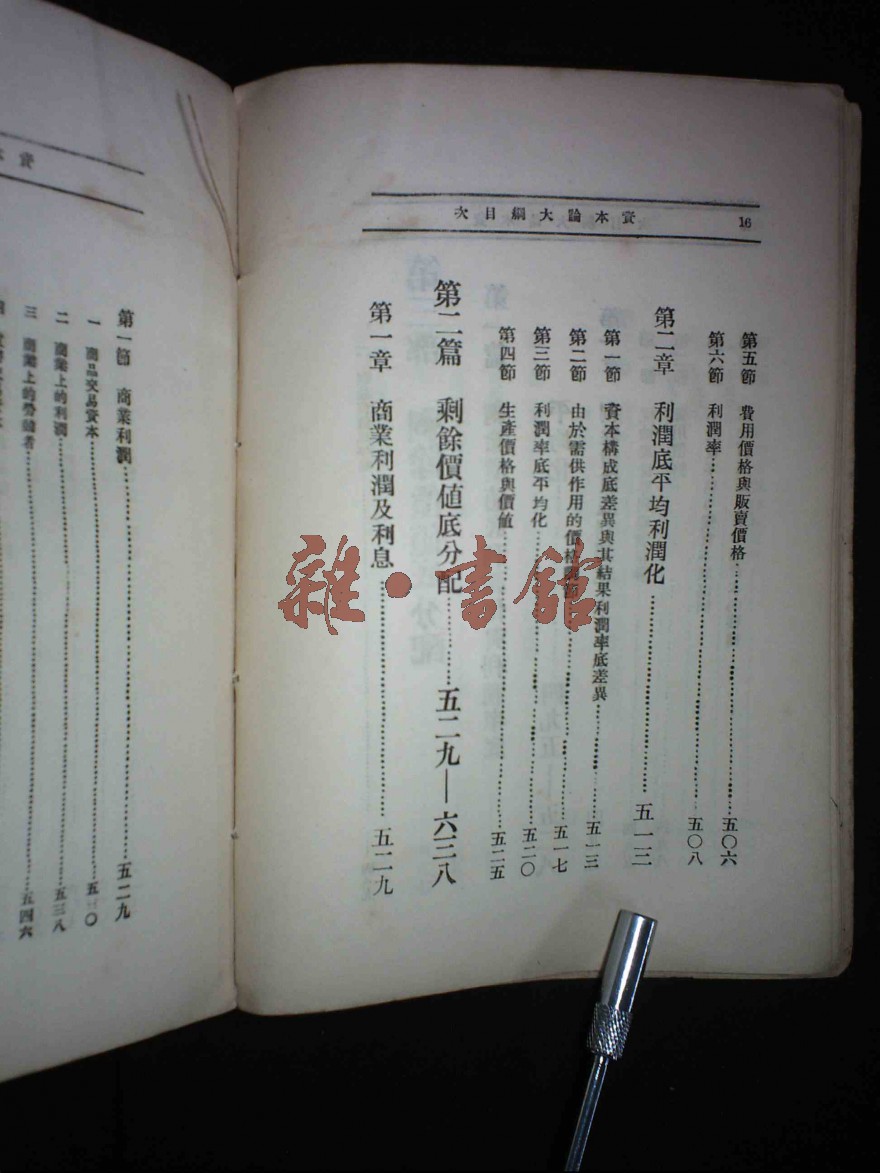 資本論大綱目次 16
第五節 費用價格與販賣價格 五〇六
第六節 利潤率 五〇八
第二章 利潤底平均利潤化 五一三
第一節 資本構成底差異與其結果利潤率底差異 五一三
第二節 由於需供作用的價格 五一七
第三節 利潤率底平均化 五二〇
第四節 生產價格與價值 五二五
第二篇 剩餘價値底分配 五二九—六三八
第一章 商業利潤及利息 五二九
資本
第一節 商業利潤 五二九
一 商品交易資本 五三〇
二 商業上的利潤 五三八
三 商業上的勞動者 五四六
雜·書館